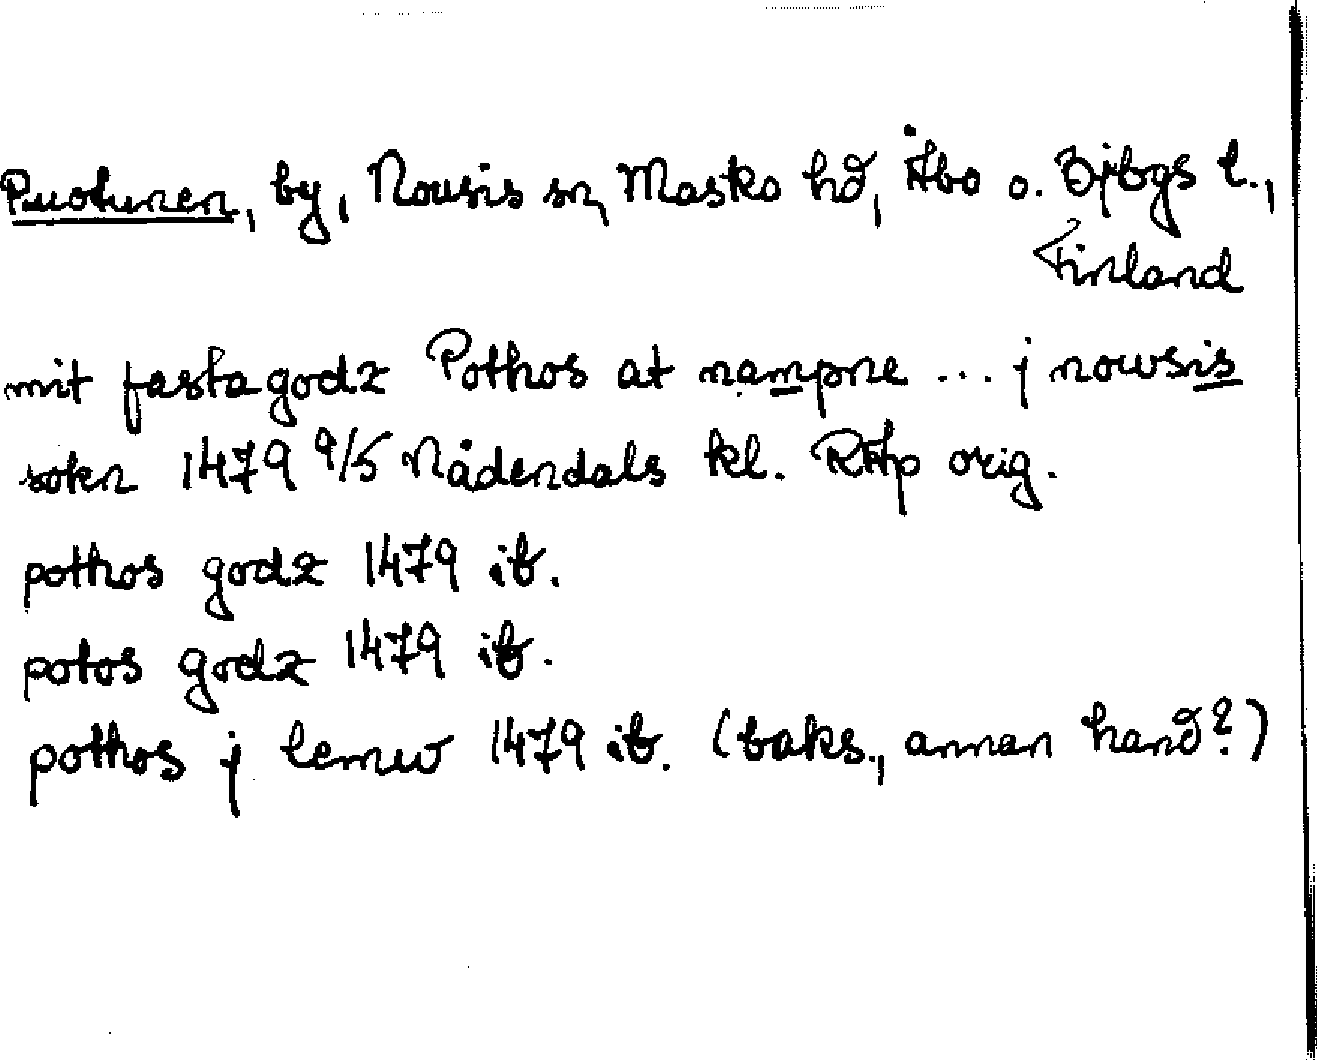 Puotunen, by, Nousis sn, Masko hd, Åbo o. Bjbgs l.,
Finland
mit fasta godz Pothos at nampne ... j nowsis
soken 1479 9/5 Nådendals kl. RAp orig.
pothos godz 1479 ib.
potos godz 1479 ib.
pothos j lemw 1479 ib. (baks., annan hand?)